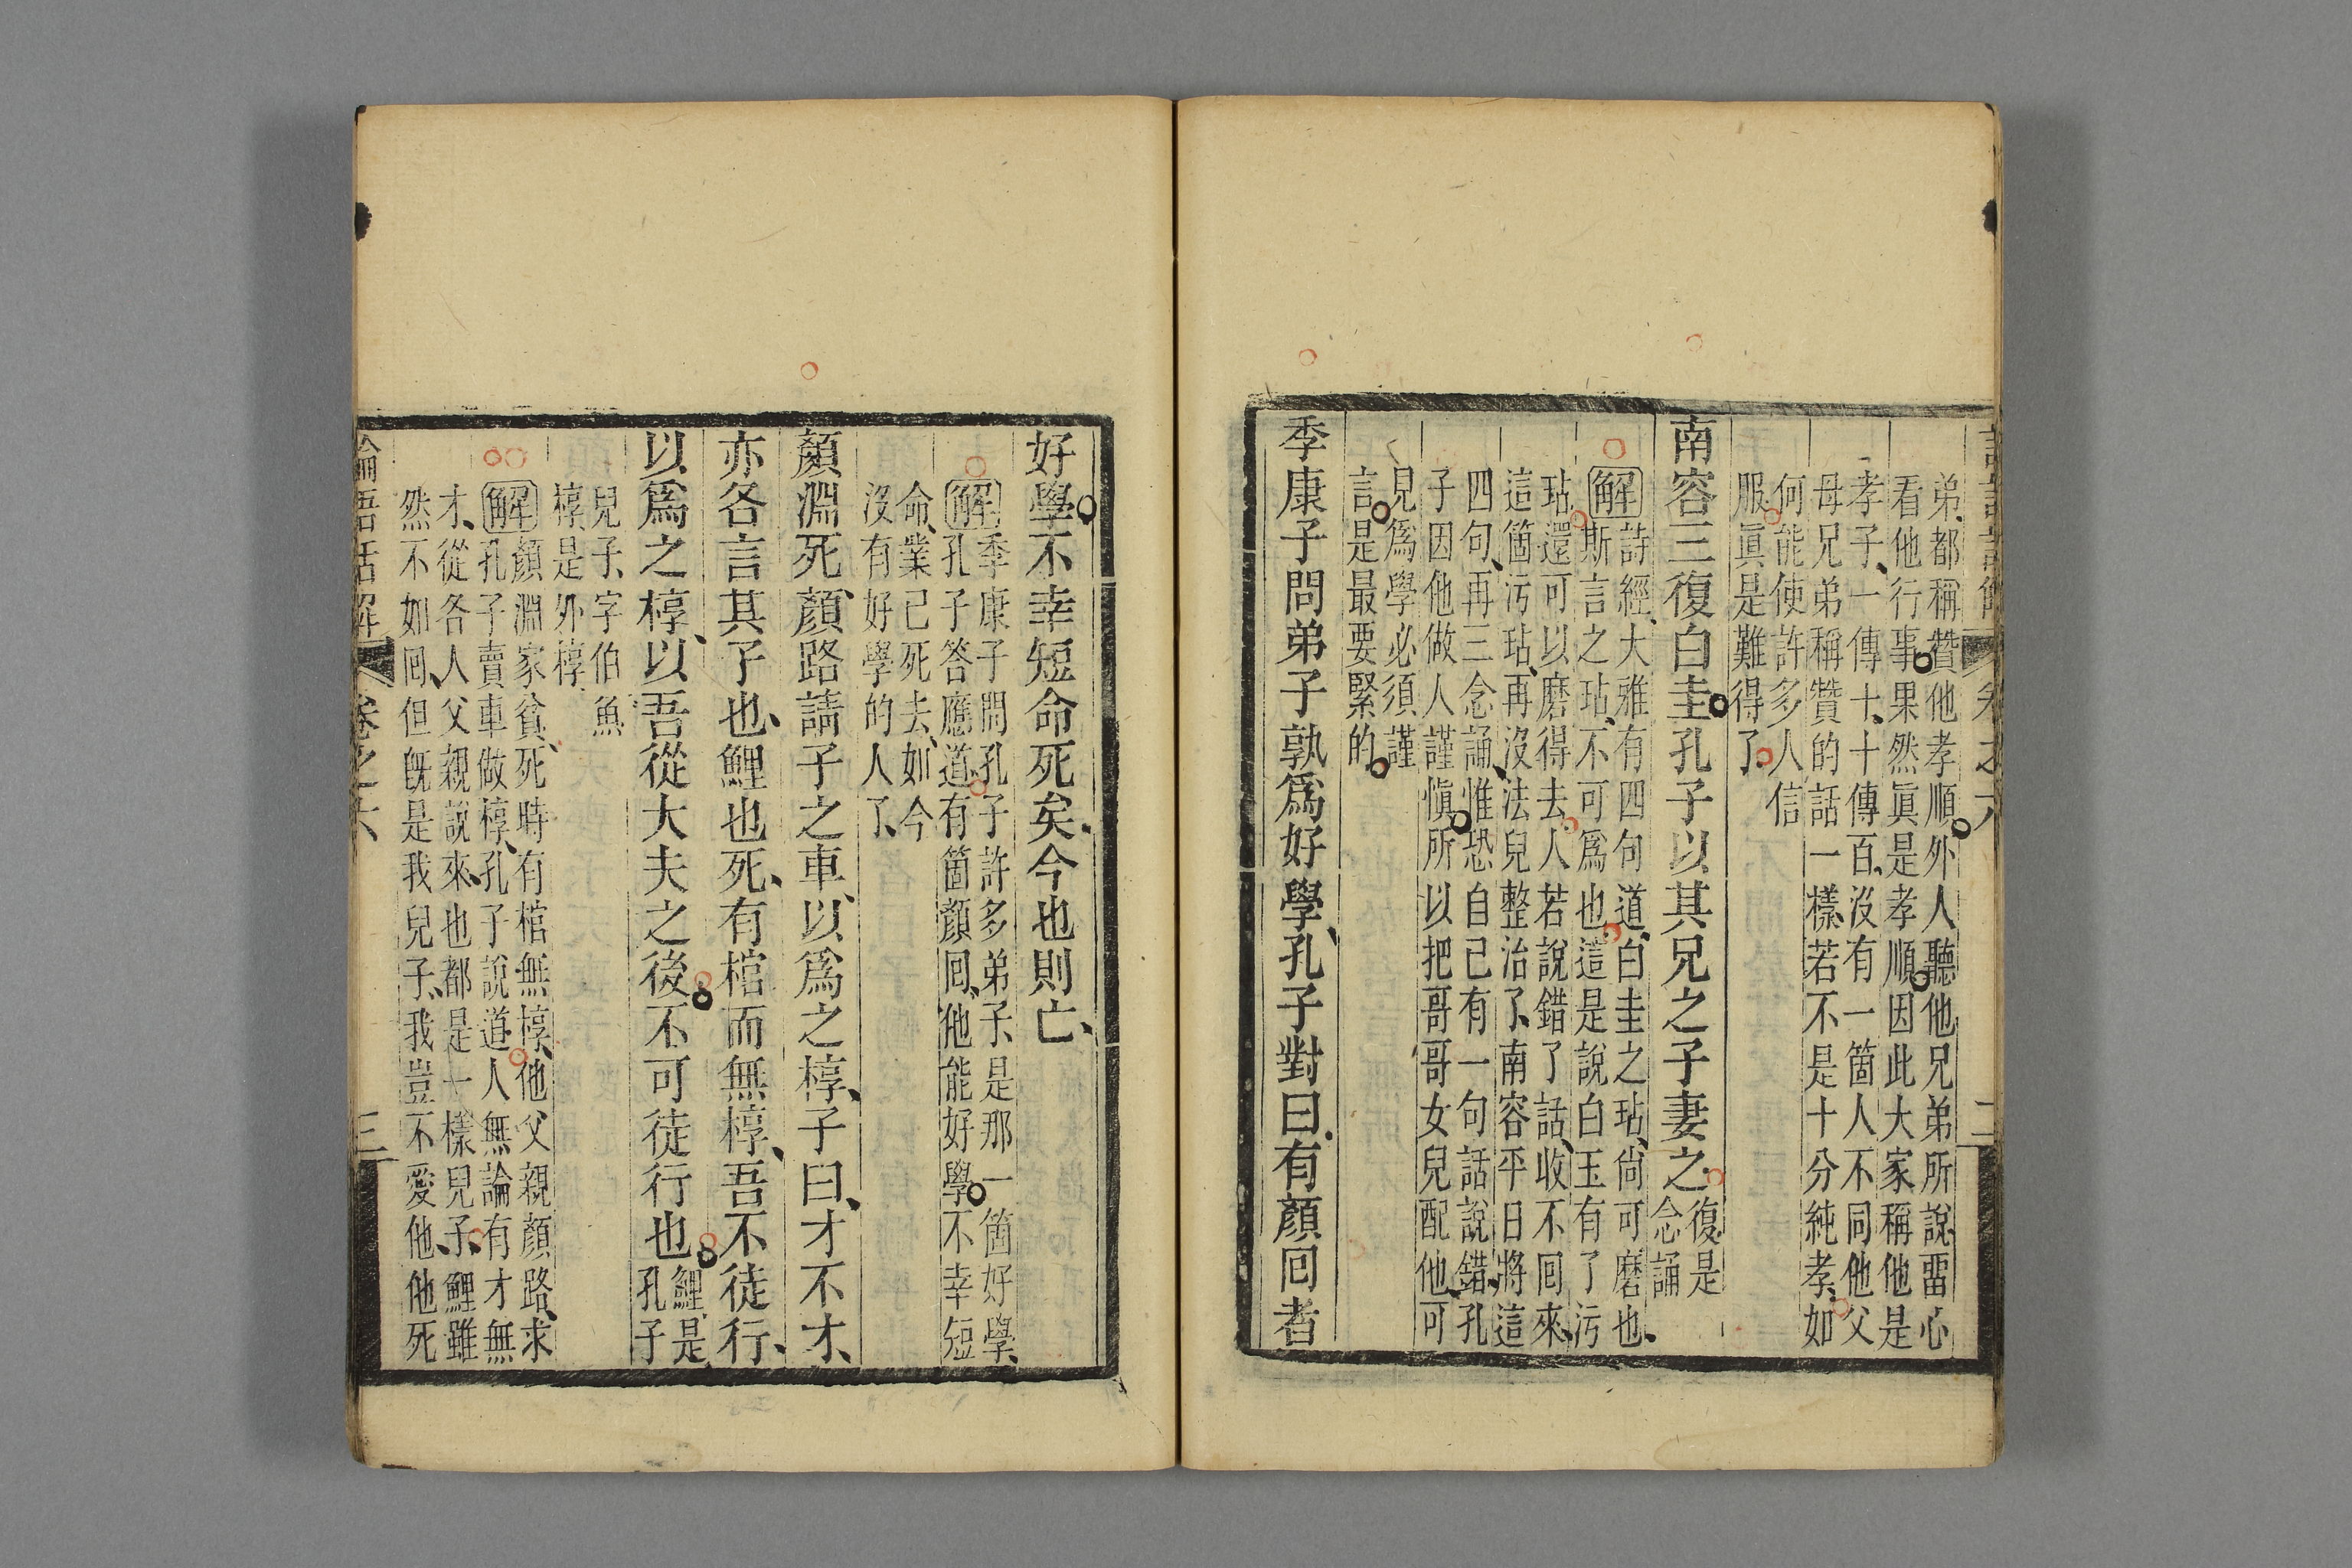 弟、都稱贊他孝順、外人聽他兄弟所說、畱心
看他行事、果然眞是孝順、因此大家稱他是
孝子、一傳十、十傳百、沒有一箇人不同他父
母兄弟稱贊的話一樣、若不是十分純孝、如
何能使許多人信
服、眞是難得了、
南容三復白圭、孔子以其兄之子妻之、
復是
念誦
解詩經、大雅有四句道、白圭之玷、尙可磨也、
斯言之玷、不可爲也、這是說白玉有了污
玷、還可以磨得去、人若說錯了話、收不囘來、
這箇污玷、再沒法兒整治了、南容平日將這
四句、再三念誦、惟恐自己有一句話說錯、孔
子因他做人謹愼、所以把哥哥女兒配他、可
見爲學必須謹
言、是最要緊的、
季康子問弟子孰爲好學、孔子對曰、有顏囘者
好學、不幸短命死矣、今也則亡、
解季康子問孔子許多弟子、是那一箇好學、
孔子答應道、有箇顏囘、他能好學、不幸短
命、業已死去、如今
沒有好學的人了、
顏淵死、顏路請子之車、以爲之椁、子曰、才不才、
亦各言其子也、鯉也死、有棺而無椁、吾不徒行、
以爲之椁、以吾從大夫之後、不可徒行也、
鯉是
孔子
兒子、字伯魚
椁是外椁
解顏淵家貧、死時有棺無椁、他父親顏路、求
孔子賣車做椁、孔子說道、人無論有才無
才、從各人父親說來、也都是一樣兒子、鯉雖
然不如囘、但旣是我兒子、我豈不愛他、他死
論語話解
卷之六
三